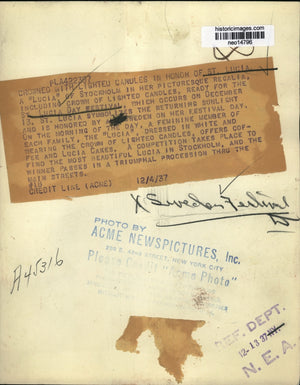 historicimages.com
neo14796
CROWNED WITH LIGHTED CANDLES IN HONOR OF ST. LUCIA.
A "LUCIA" OF STOCKHOLM IN HER PICTURESQUE REGALIA,
INCLUDING CROWN OF LIGHTED CANDLES, READY FOR THE
ST. DAY FESTIVAL, WHICH OCCURS ON DECEMBER
ST. LUCIA SYMBOLIZES THE RETURNING SUNLIGHT
AND IS HONORED BY ON HER FESTIVAL DAY.
ON THE MORNING OF THE DAY, A FEMININE MEMBER OF
EACH FAMILY, THE "LUCIA", DRESSED IN WHITE AND
WEARING THE CROWN OF LIGHTED CANDLES, OFFERS COF-
FEE AND LUCIA CAKES. A COMPETITION TAKES PLACE TO
FIND THE MOST BEAUTIFUL LUCIA IN STOCKHOLM, AND THE
WINNER PASSES IN A TRIUMPHAL PROCESSION THRU THE
MAIN STREETS.
CREDIT LINE (ACME) 12/4/37
X Sweden Festival
A45316
PHOTO BY
ACME NEWSPICTURES, Inc.
220 E. 42ND STREET, NEW YORK CITY
Please Credit "Acme Photo"
REF. DEPT.
12-13-37
N. E. A.